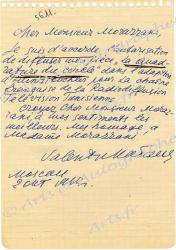 5611.
Cher Monsieur Morazzani,
Je suis d'accorde, l'autorisation
de diffuser ma pièce, la quad-
rature du cercle dans l'adaption
pour la chaîne
française de la Radiodiffusion
Télévision Tunisienne
Croyez Cher Monsieur Mora-
zzani à mes sentiments les
meilleurs. Mes homage à
Madame Morazzani
Valentin Kataev
Moscou